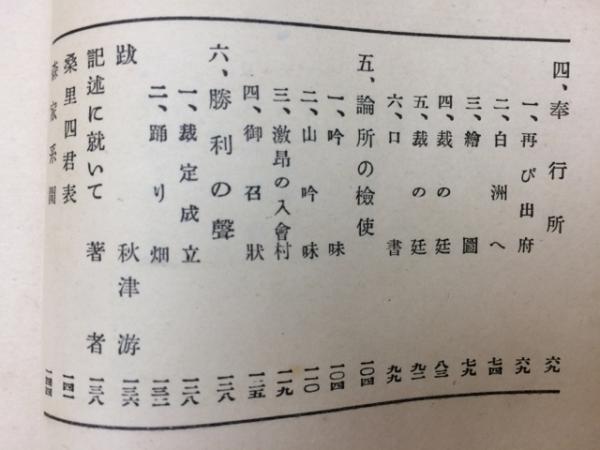 四、奉行所 六九
一、再び出府 六九
二、白洲へ 七四
三、繪圖 七九
四、裁の廷 八三
五、裁の廷 九二
六、口書 九九
五、論所の檢使 一〇四
一、吟味 一〇四
二、山吟味 一一〇
三、激昂の入會村 一一九
四、御召狀 一二五
六、勝利の聲 一二八
一、裁定成立 一二八
二、踊り畑 一三二
跋 秋津游 一三六
記述に就いて 著者 一三八
桑里四君表 一四一
家系圖